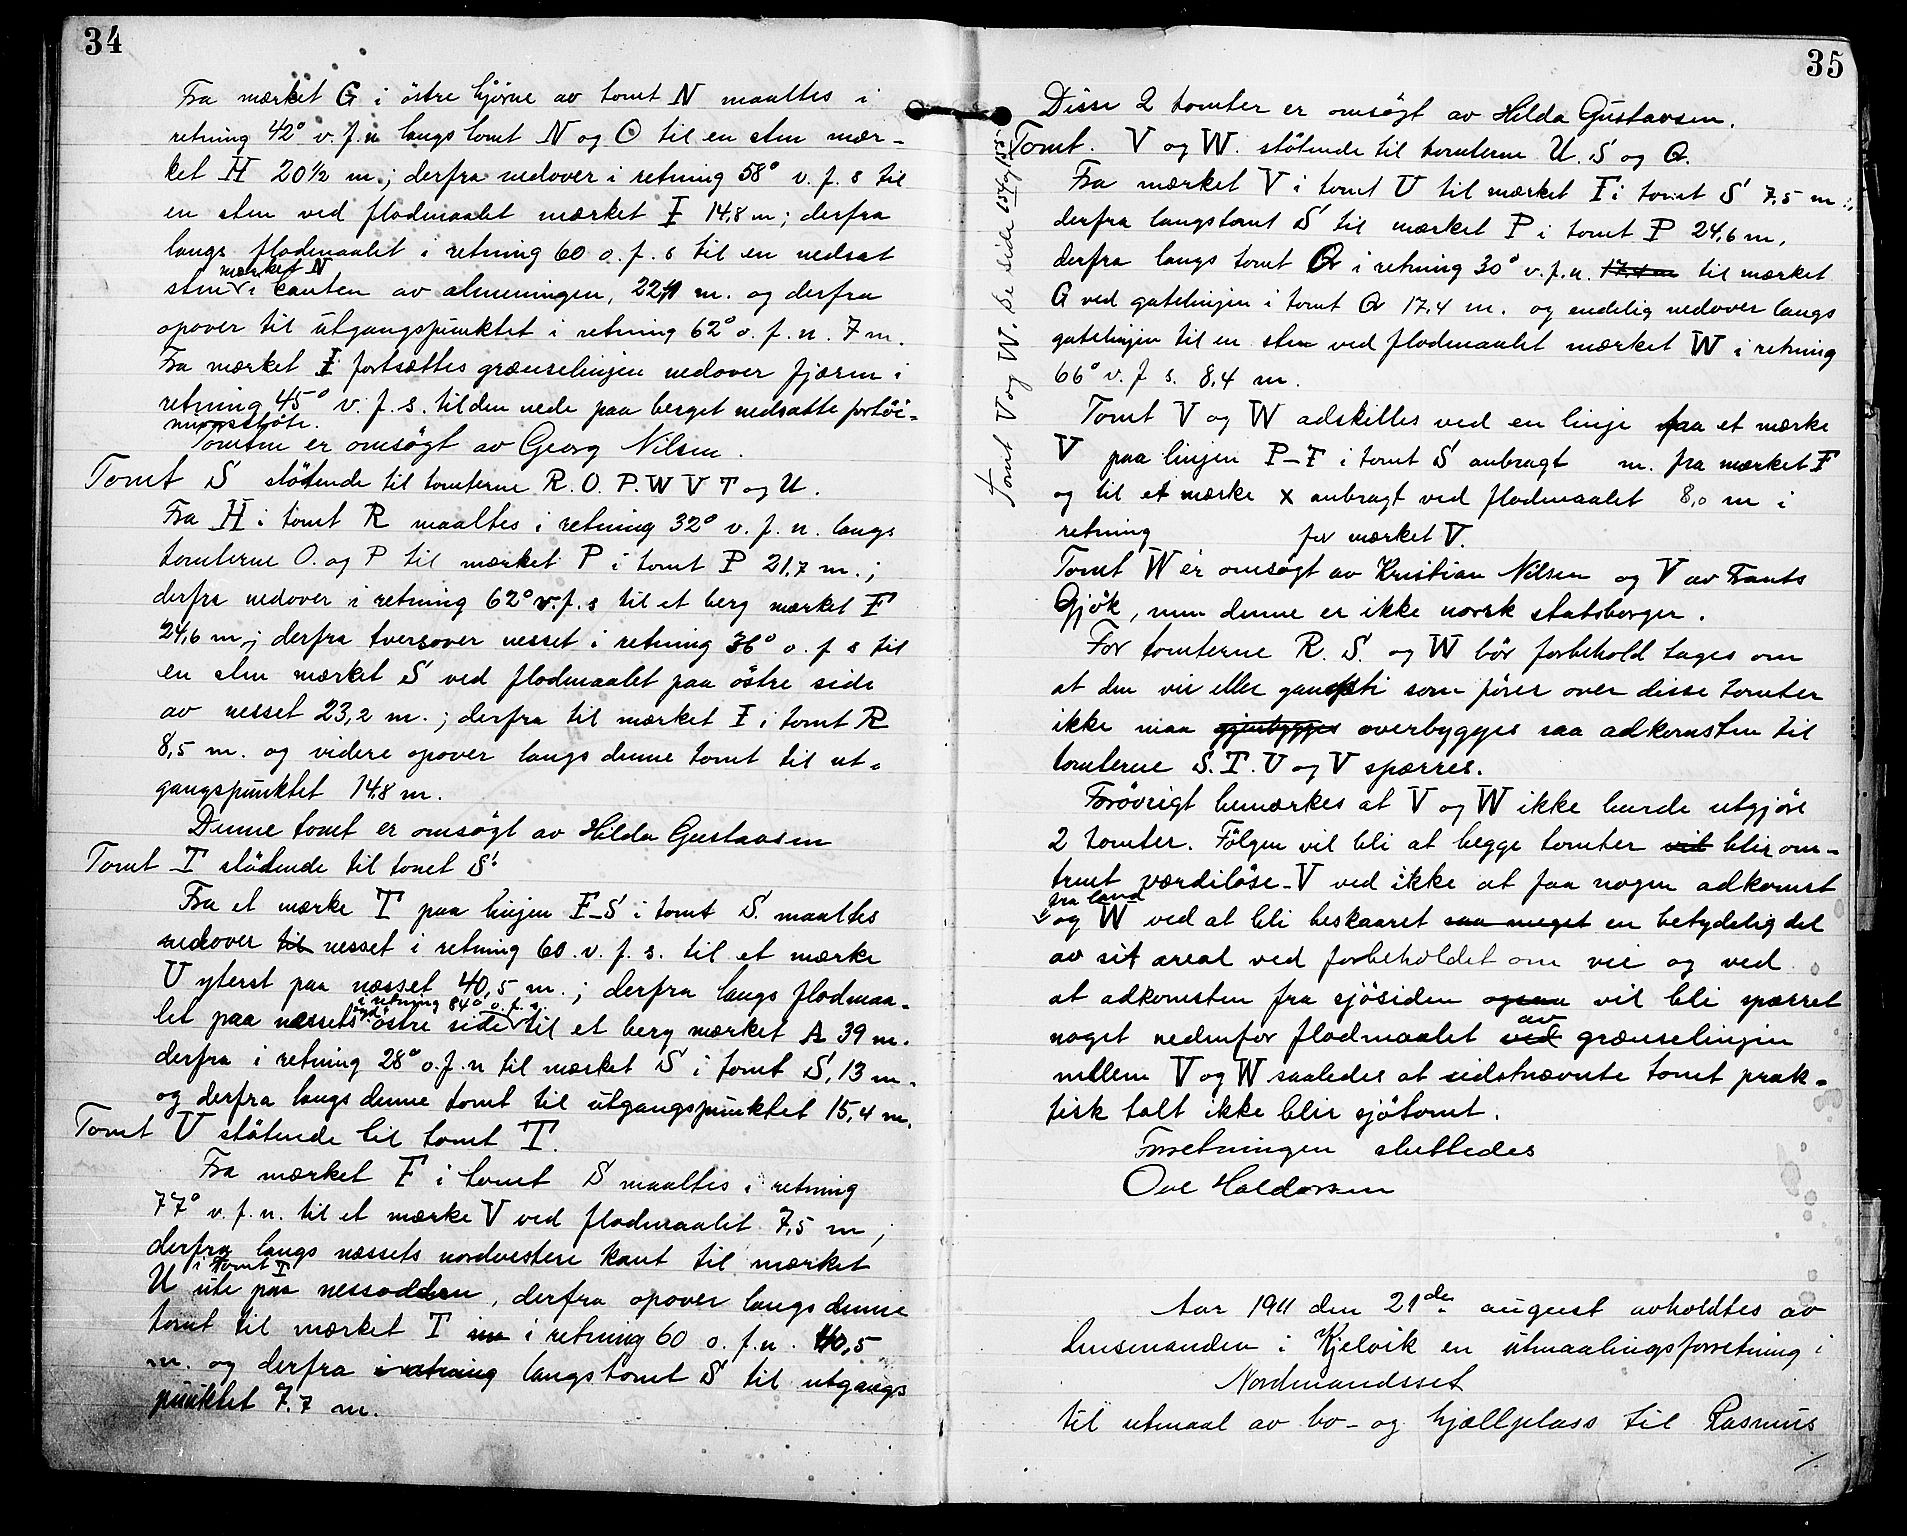 34
Fra mærket G i östre hjörne av tomt N maaltes i
retning 42° v.f.n langs tomt N og O til en sten mær-
ket H 20½ m.; derfra nedover i retning 58° v.f.s til
en sten ved flodmaalet mærket I 14,8 m; derfra
langs flodmaalet i retning 60 o.f.s til en nedsat
mærket N
sten i kanten av almeningen, 22,1 m. og derfra
opover til utgangspunktet i retning 62° o.f.n. 7 m.
Fra mærket I fortsættes grænselinjen nedover fjæren i
retning 45° v.f.s. til den nede paa berget nedsatte fortöi-
ningsstötte.
Tomten er omsögt av Georg Nilsen.
Tomt S stötende til tomterne R. O. P. W V T og U.
Fra H i tomt R maaltes i retning 32° v.f.n. langs
tomterne O. og P til mærket P i tomt P 21,7 m.;
derfra nedover i retning 62° v.f.s til et berg mærket F
24,6 m; derfra tversover nesset i retning 36° o.f s til
en sten mærket S ved flodmaalet paa östre side
av nesset 23,2 m.; derfra til mærket I i tomt R
8,5 m. og videre opover langs denne tomt til ut-
gangspunktet 14,8 m.
Denne tomt er omsögt av Hilda Gustavsen
Tomt T stötende til tomt S.
Fra et mærke T paa linjen F-S i tomt S. maaltes
nedover til nesset i retning 60. v.f.s. til et mærke
U yterst paa næsset 40,5 m.; derfra langs flodmaa-
i retning 84° o.f.s.
let paa næssets östre side til et berg mærket A 39 m.
derfra i retning 28° o.f.n til mærket S i tomt S, 13 m.
og derfra langs denne tomt til utgangspunktet 15,4 m.
Tomt U stötende til tomt T.
Fra mærket F i tomt S maaltes i retning
77° v.f.n. til et mærke V ved flodmaalet 7,5 m;
derfra langs næssets nordvestere kant til mærket
i tomt T
U ute paa nessodden, derfra opover langs denne
tomt til mærket T i retning 60 o.f.n. 40,5
m. og derfra i retning langs tomt S til utgangs
punktet 7,7 m.
35
Disse 2 tomter er omsögt av Hilda Gustavsen.
Tomt. V og W. stötende til tomterne U. S og Q.
Fra mærket V i tomt U til mærket F i tomt S 7,5 m;
derfra langs tomt S til mærket P i tomt P 24,6 m,
derfra langs tomt Q i retning 30° v.f.n. 17,4 m til mærket
G ved gatelinjen i tomt Q 17,4 m. og endelig nedover langs
gatelinjen til en sten ved flodmaalet mærket W i retning
66° v.f s. 8,4 m.
Tomt V og W adskilles ved en linje fra et mærke
V paa linjen P-F i tomt S anbragt m. fra mærket F
og til et mærke x anbragt ved flodmaalet 8,0 m i
retning for mærket V.
Tomt W er omsögt av Kristian Nilsen og V av Frants
Gjök, men denne er ikke norsk statsborger.
For tomterne R. S. og W bör forbehold tages om
at den vei eller gangsti som förer over disse tomter
ikke maa gjenbygges overbygges saa adkomsten til
tomterne S. T. U og V spærres.
Forövrigt bemærkes at V og W ikke burde utgjöre
2 tomter. Fölgen vil bli at begge tomter vil blir om-
trent værdilöse - V ved ikke at faa nogen adkomst
fra land
og W ved at bli beskaaret saa meget en betydelig del
av sit areal ved forbeholdet om vei og ved
at adkomsten fra sjösiden ogsaa vil bli spærret
av
noget nedenfor flodmaalet ved grænselinjen
mellem V og W saaledes at sidstnævnte tomt prak-
tisk talt ikke blir sjötomt.
Forretningen sluttedes
Ove Haldorsen
Aar 1911 den 21de august avholdtes av
lensmanden i Kjelvik en utmaalingsforretning i
Nordmandsset
til utmaal av bo- og hjellplass til Rasmus
Tomt V og W. Se side 154 og 155